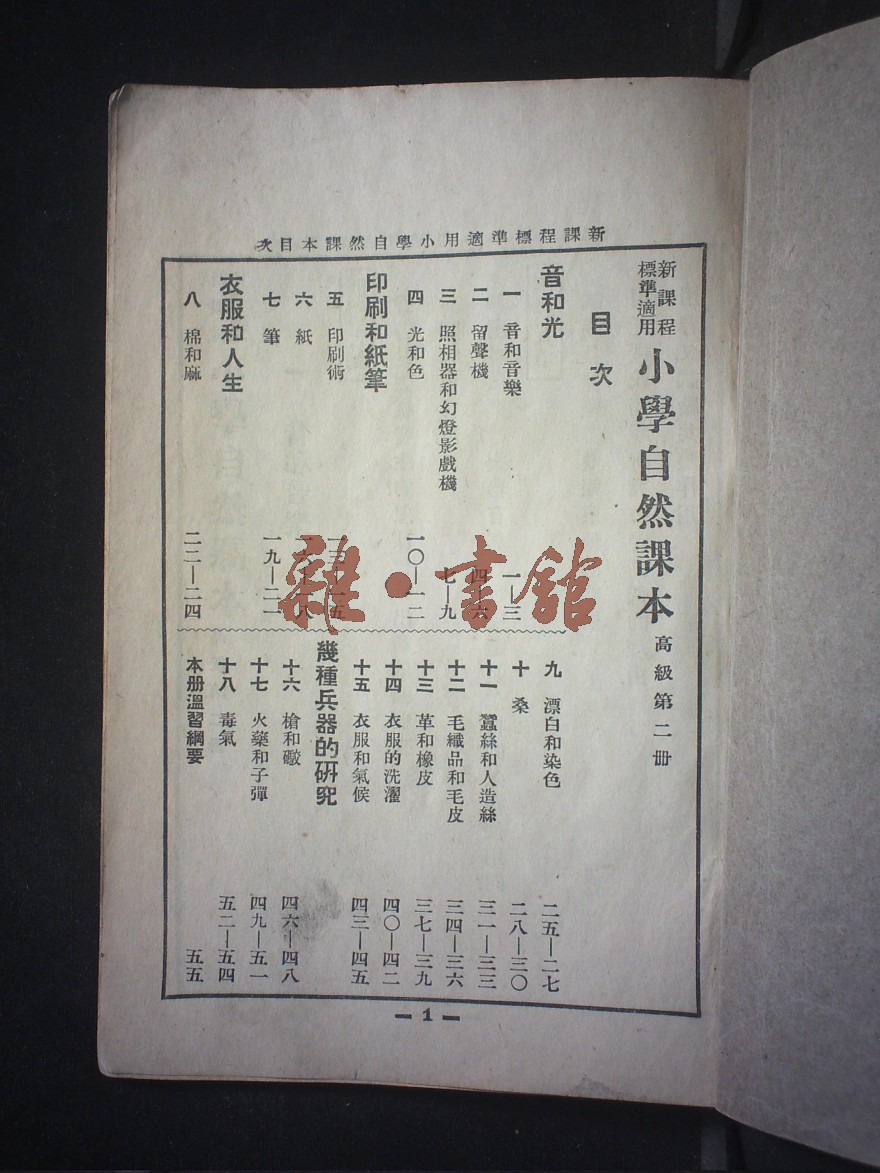 新課程標準適用小學自然課本目次
新課程
標準適用
小學自然課本 高級第二册
目次
音和光
一 音和音樂 一—三
二 留聲機 四—六
三 照相器和幻燈影戲機 七—九
四 光和色 一〇—一二
印刷和紙筆
五 印刷術 一三—一五
六 紙 一六—一八
七 筆 一九—二一
衣服和人生
八 棉和麻 二二—二四
九 漂白和染色 二五—二七
十 桑 二八—三〇
十一 蠶絲和人造絲 三一—三三
十二 毛織品和毛皮 三四—三六
十三 革和橡皮 三七—三九
十四 衣服的洗濯 四〇—四二
十五 衣服和氣候 四三—四五
幾種兵器的研究
十六 槍和礮 四六—四八
十七 火藥和子彈 四九—五一
十八 毒氣 五二—五四
本册溫習綱要 五五
— 1 —
雜·書館